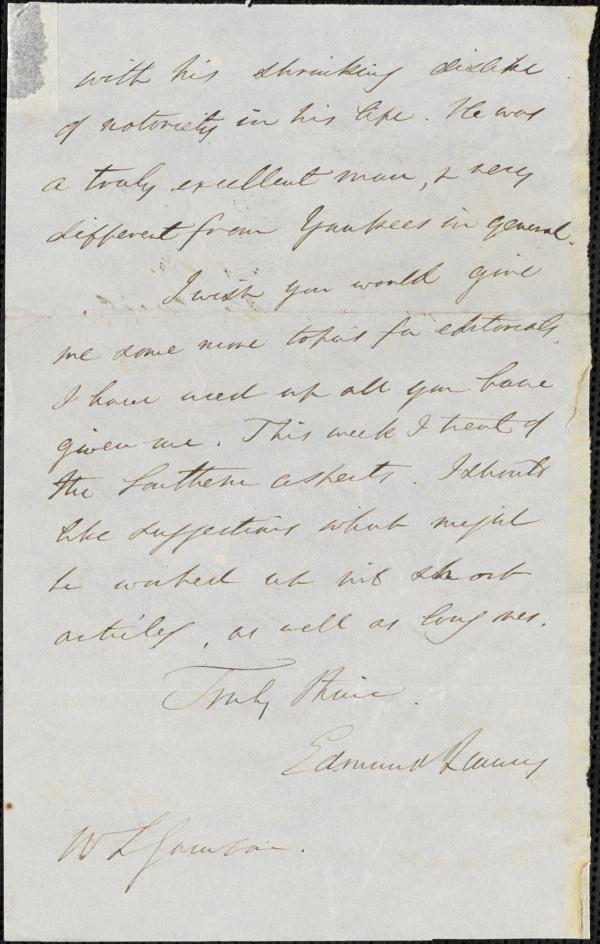 with his shrinking dislike
of notoriety in his life. He was
a truly excellent man, & very
different from Yankees in general.
I wish you would give
me some more topics for editorials.
I have used up all you have
given me. This week I treat of
the Southern aspects. I should
like suggestions what might
be worked up into short
articles, as well as long ones.
Truly thine.
Edmund Quincy
W L Garrison.